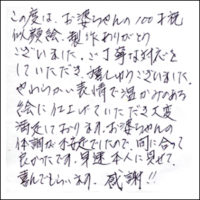 この度は、お婆ちゃんの100才祝
似顔絵、製作ありがとう
ございました。ご丁寧な対応を
していただき、嬉しゅうございました。
やわらかい表情で温かみのある
絵に仕上げていただき大変
満足しております。お婆ちゃんの
体調が不安定でしたので、間に合って
良かったです。早速本人に見せて、
喜んでもらいます。感謝!!